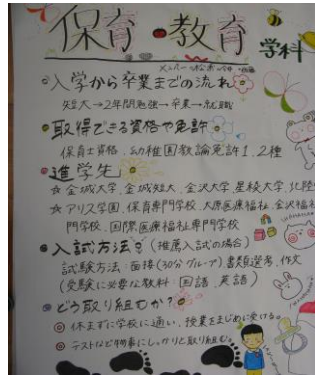 保育・教育
学科
入学から卒業までの流れ
短大→2年間勉強→卒業→就職
取得できる資格や免許
保育士資格、幼稚園教諭免許1、2種
進学先
☆ 金城大学、金城短大、金沢大学、星稜大学、北陸
☆ アリス学園、保育専門学校、大原医療福祉、金沢福祉
門学校、国際医療福祉専門学校
入試方法 (推薦入試の場合)
試験方法:面接(30分グループ)書類選考、作文
(受験に必要な教科:国語、英語)
どう取り組むか?
◎ 休まずに学校に通い、授業をまじめに受ける。
◎ テストなど物事にしっかりと取り組む。